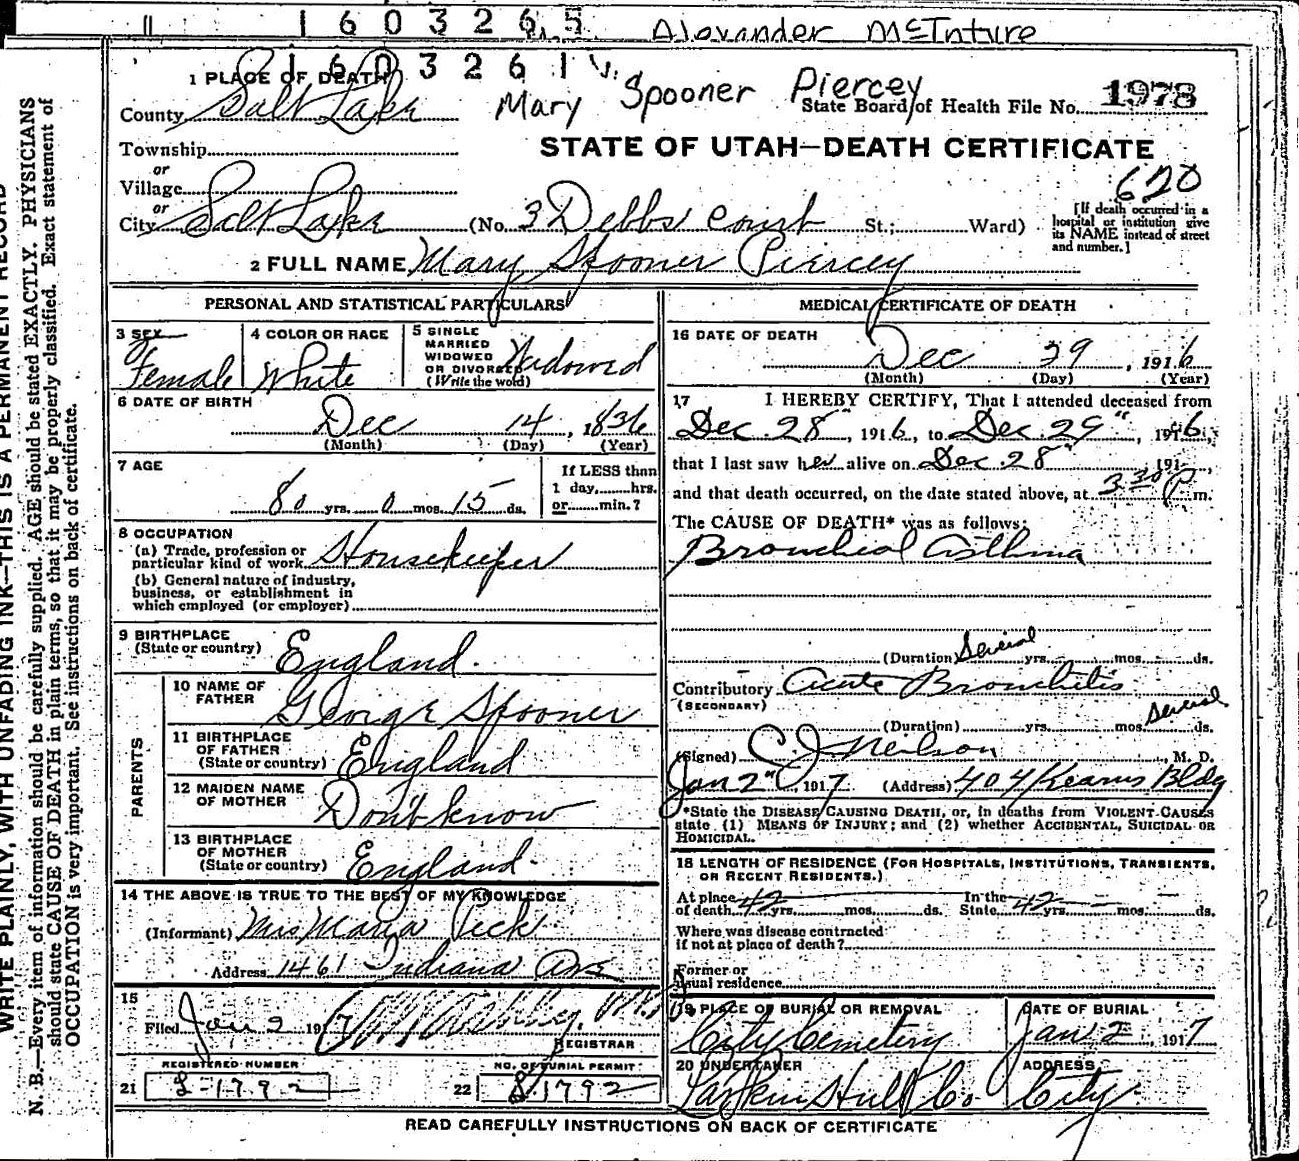 1603265 Alexander McInture
1603261
Mary Spooner Piercey
1 PLACE OF DEATH
County Salt Lake
State Board of Health File No. 1978
Township
or
Village
or
City Salt Lake (No. 3 Debbs Court St.; Ward)
STATE OF UTAH—DEATH CERTIFICATE
620
[If death occurred in a hospital or institution give its NAME instead of street and number.]
2 FULL NAME Mary Spooner Piercey
PERSONAL AND STATISTICAL PARTICULARS
3 SEX Female
4 COLOR OR RACE White
5 SINGLE MARRIED WIDOWED OR DIVORCED (Write the word) Widowed
6 DATE OF BIRTH
Dec 14, 1836
(Month) (Day) (Year)
7 AGE
80 yrs. 0 mos. 15 ds.
If LESS than 1 day, hrs. or min.?
8 OCCUPATION
(a) Trade, profession or particular kind of work Housekeeper
(b) General nature of industry, business, or establishment in which employed (or employer)
9 BIRTHPLACE (State or country) England.
PARENTS
10 NAME OF FATHER George Spooner
11 BIRTHPLACE OF FATHER (State or country) England
12 MAIDEN NAME OF MOTHER Don't know
13 BIRTHPLACE OF MOTHER (State or country) England.
14 THE ABOVE IS TRUE TO THE BEST OF MY KNOWLEDGE
(Informant) Mrs Maria Peck
Address 1461 Indiana Ave
15
Filed Jan 2 1917
REGISTRAR
REGISTERED NUMBER
21 2-1792
NO. OF BURIAL PERMIT
22 1792
MEDICAL CERTIFICATE OF DEATH
16 DATE OF DEATH
Dec 29, 1916
(Month) (Day) (Year)
17 I HEREBY CERTIFY, That I attended deceased from
Dec. 28", 1916, to Dec. 29", 1916,
that I last saw her alive on Dec. 28", 191
and that death occurred, on the date stated above, at 3 30 P m.
The CAUSE OF DEATH* was as follows:
Broncheal Asthma
(Duration) Several yrs. mos. ds.
Contributory Acute Bronchitis
(SECONDARY)
(Duration) yrs. mos. Several ds.
(Signed) C. J. Neilson, M. D.
Jan 2" 1917 (Address) 404 Kearns Bldg
*State the DISEASE CAUSING DEATH, or, in deaths from VIOLENT CAUSES
state (1) MEANS OF INJURY; and (2) whether ACCIDENTAL, SUICIDAL OR
HOMICIDAL.
18 LENGTH OF RESIDENCE (FOR HOSPITALS, INSTITUTIONS, TRANSIENTS,
OR RECENT RESIDENTS.)
At place of death 42 yrs. mos. ds. In the State 42 yrs. mos. ds.
Where was disease contracted
if not at place of death?
Former or
usual residence
19 PLACE OF BURIAL OR REMOVAL
City Cemetery
DATE OF BURIAL
Jan 2, 1917
20 UNDERTAKER
Larkin Hull Co.
ADDRESS
City
READ CAREFULLY INSTRUCTIONS ON BACK OF CERTIFICATE
WRITE PLAINLY, WITH UNFADING INK—THIS IS A PERMANENT RECORD
N. B.—Every item of information should be carefully supplied. AGE should be stated EXACTLY. PHYSICIANS
should state CAUSE OF DEATH in plain terms, so that it may be properly classified. Exact statement of
OCCUPATION is very important. See instructions on back of certificate.